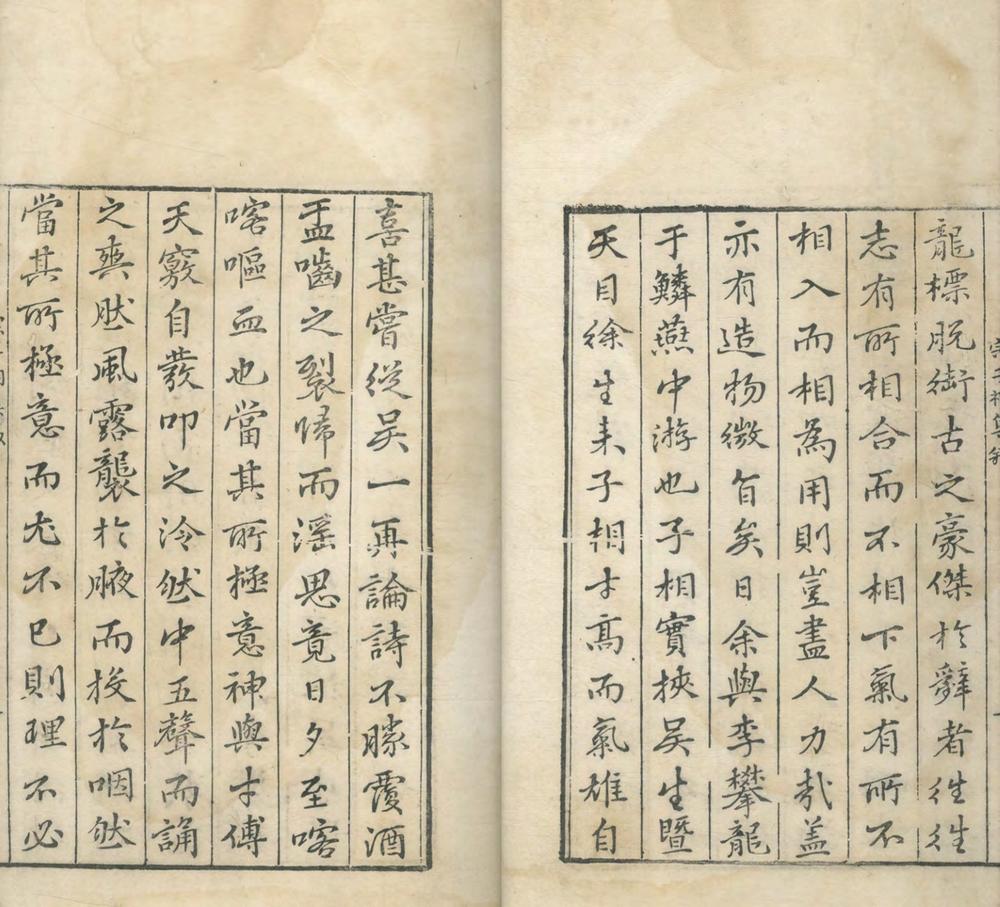 龍標脫銜古之豪傑於辭者往往
志有所相合而不相下氣有所不
相入而相為用則豈盡人力哉蓋
亦有造物微旨矣日余與李攀龍
于鱗燕中游也子相實挾吳生暨
天目徐生来子相才高而氣雄自
喜甚嘗從吳一再論詩不勝覆酒
盂嚙之裂歸而滛思竟日夕至喀
喀嘔血也當其所極意神與才傅
天竅自發叩之泠然中五聲而誦
之爽然風露襲於腋而投於咽然
當其所極意而尤不已則理不必